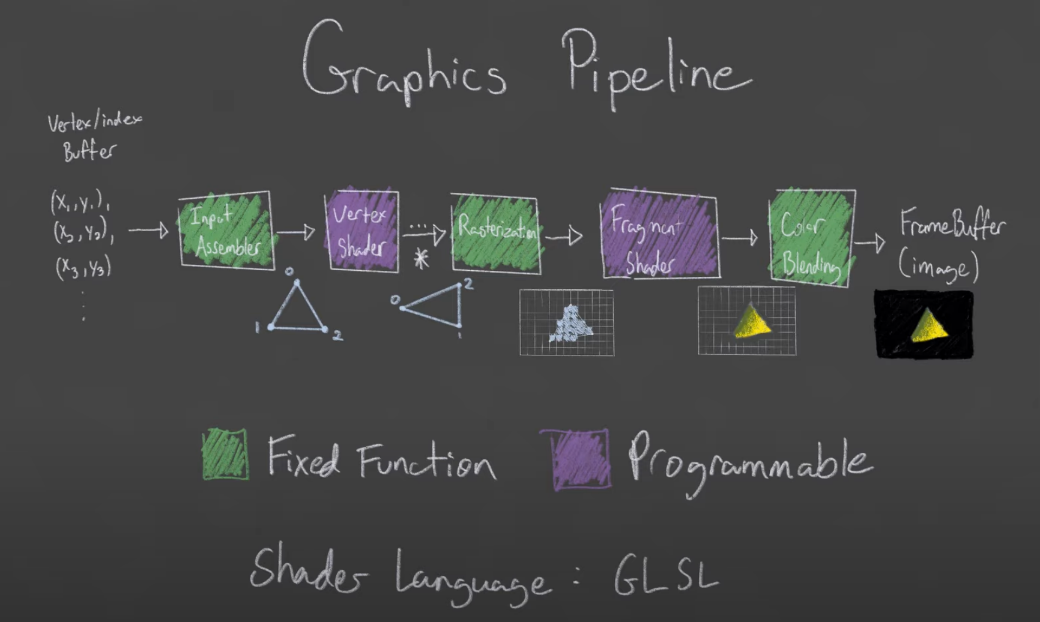 Graphics Pipeline
Vertex/index
Buffer
(x₁,y₁),
(x₂,y₂),
(x₃,y₃)
⋮
Input
Assembler
Vertex
Shader
...
*
Rasterization
Fragment
Shader
Color
Blending
FrameBuffer
(image)
0
1
2
0
2
1
Fixed Function
Programmable
Shader Language: GLSL